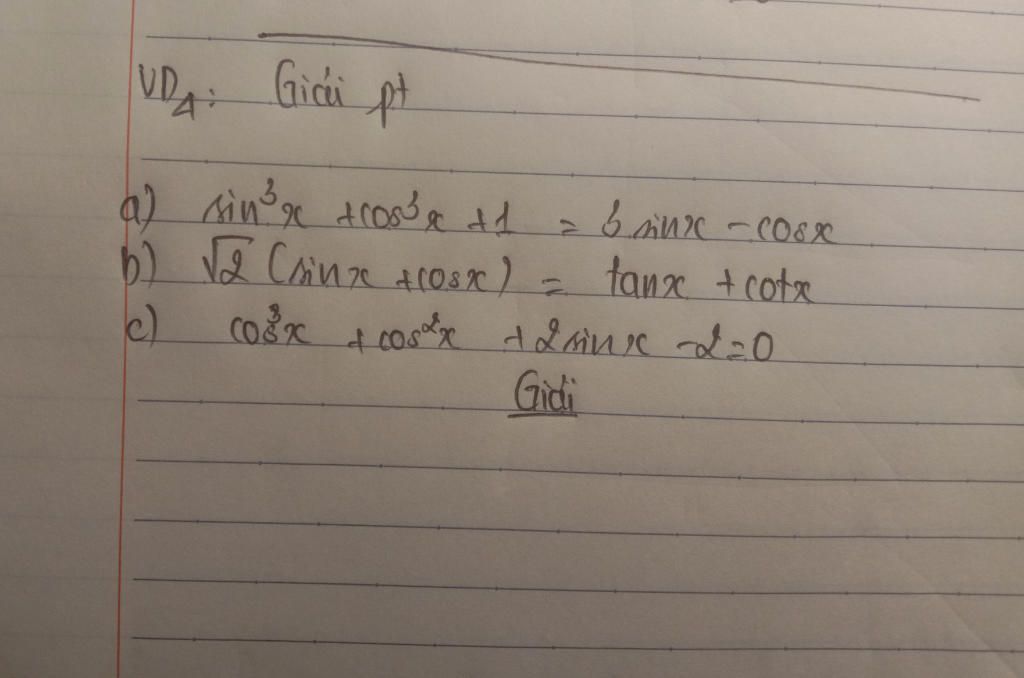 VD4: Giải pt
a) sin³x + cos³x + 1 = 3 sinx - cosx
b) √2 (sinx + cosx) = tanx + cotx
c) cos³x + cos²x + 2 sinx - 2 = 0
Giải